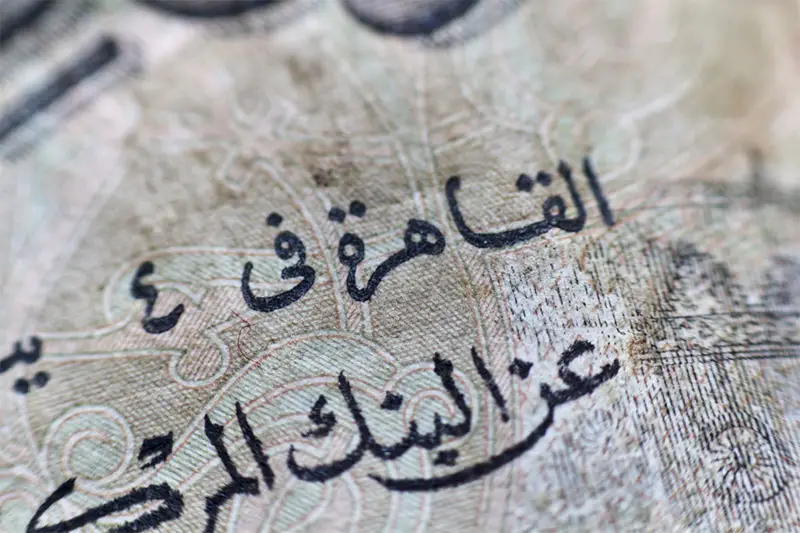 القاهرة فى ٤
عن البنك المرك